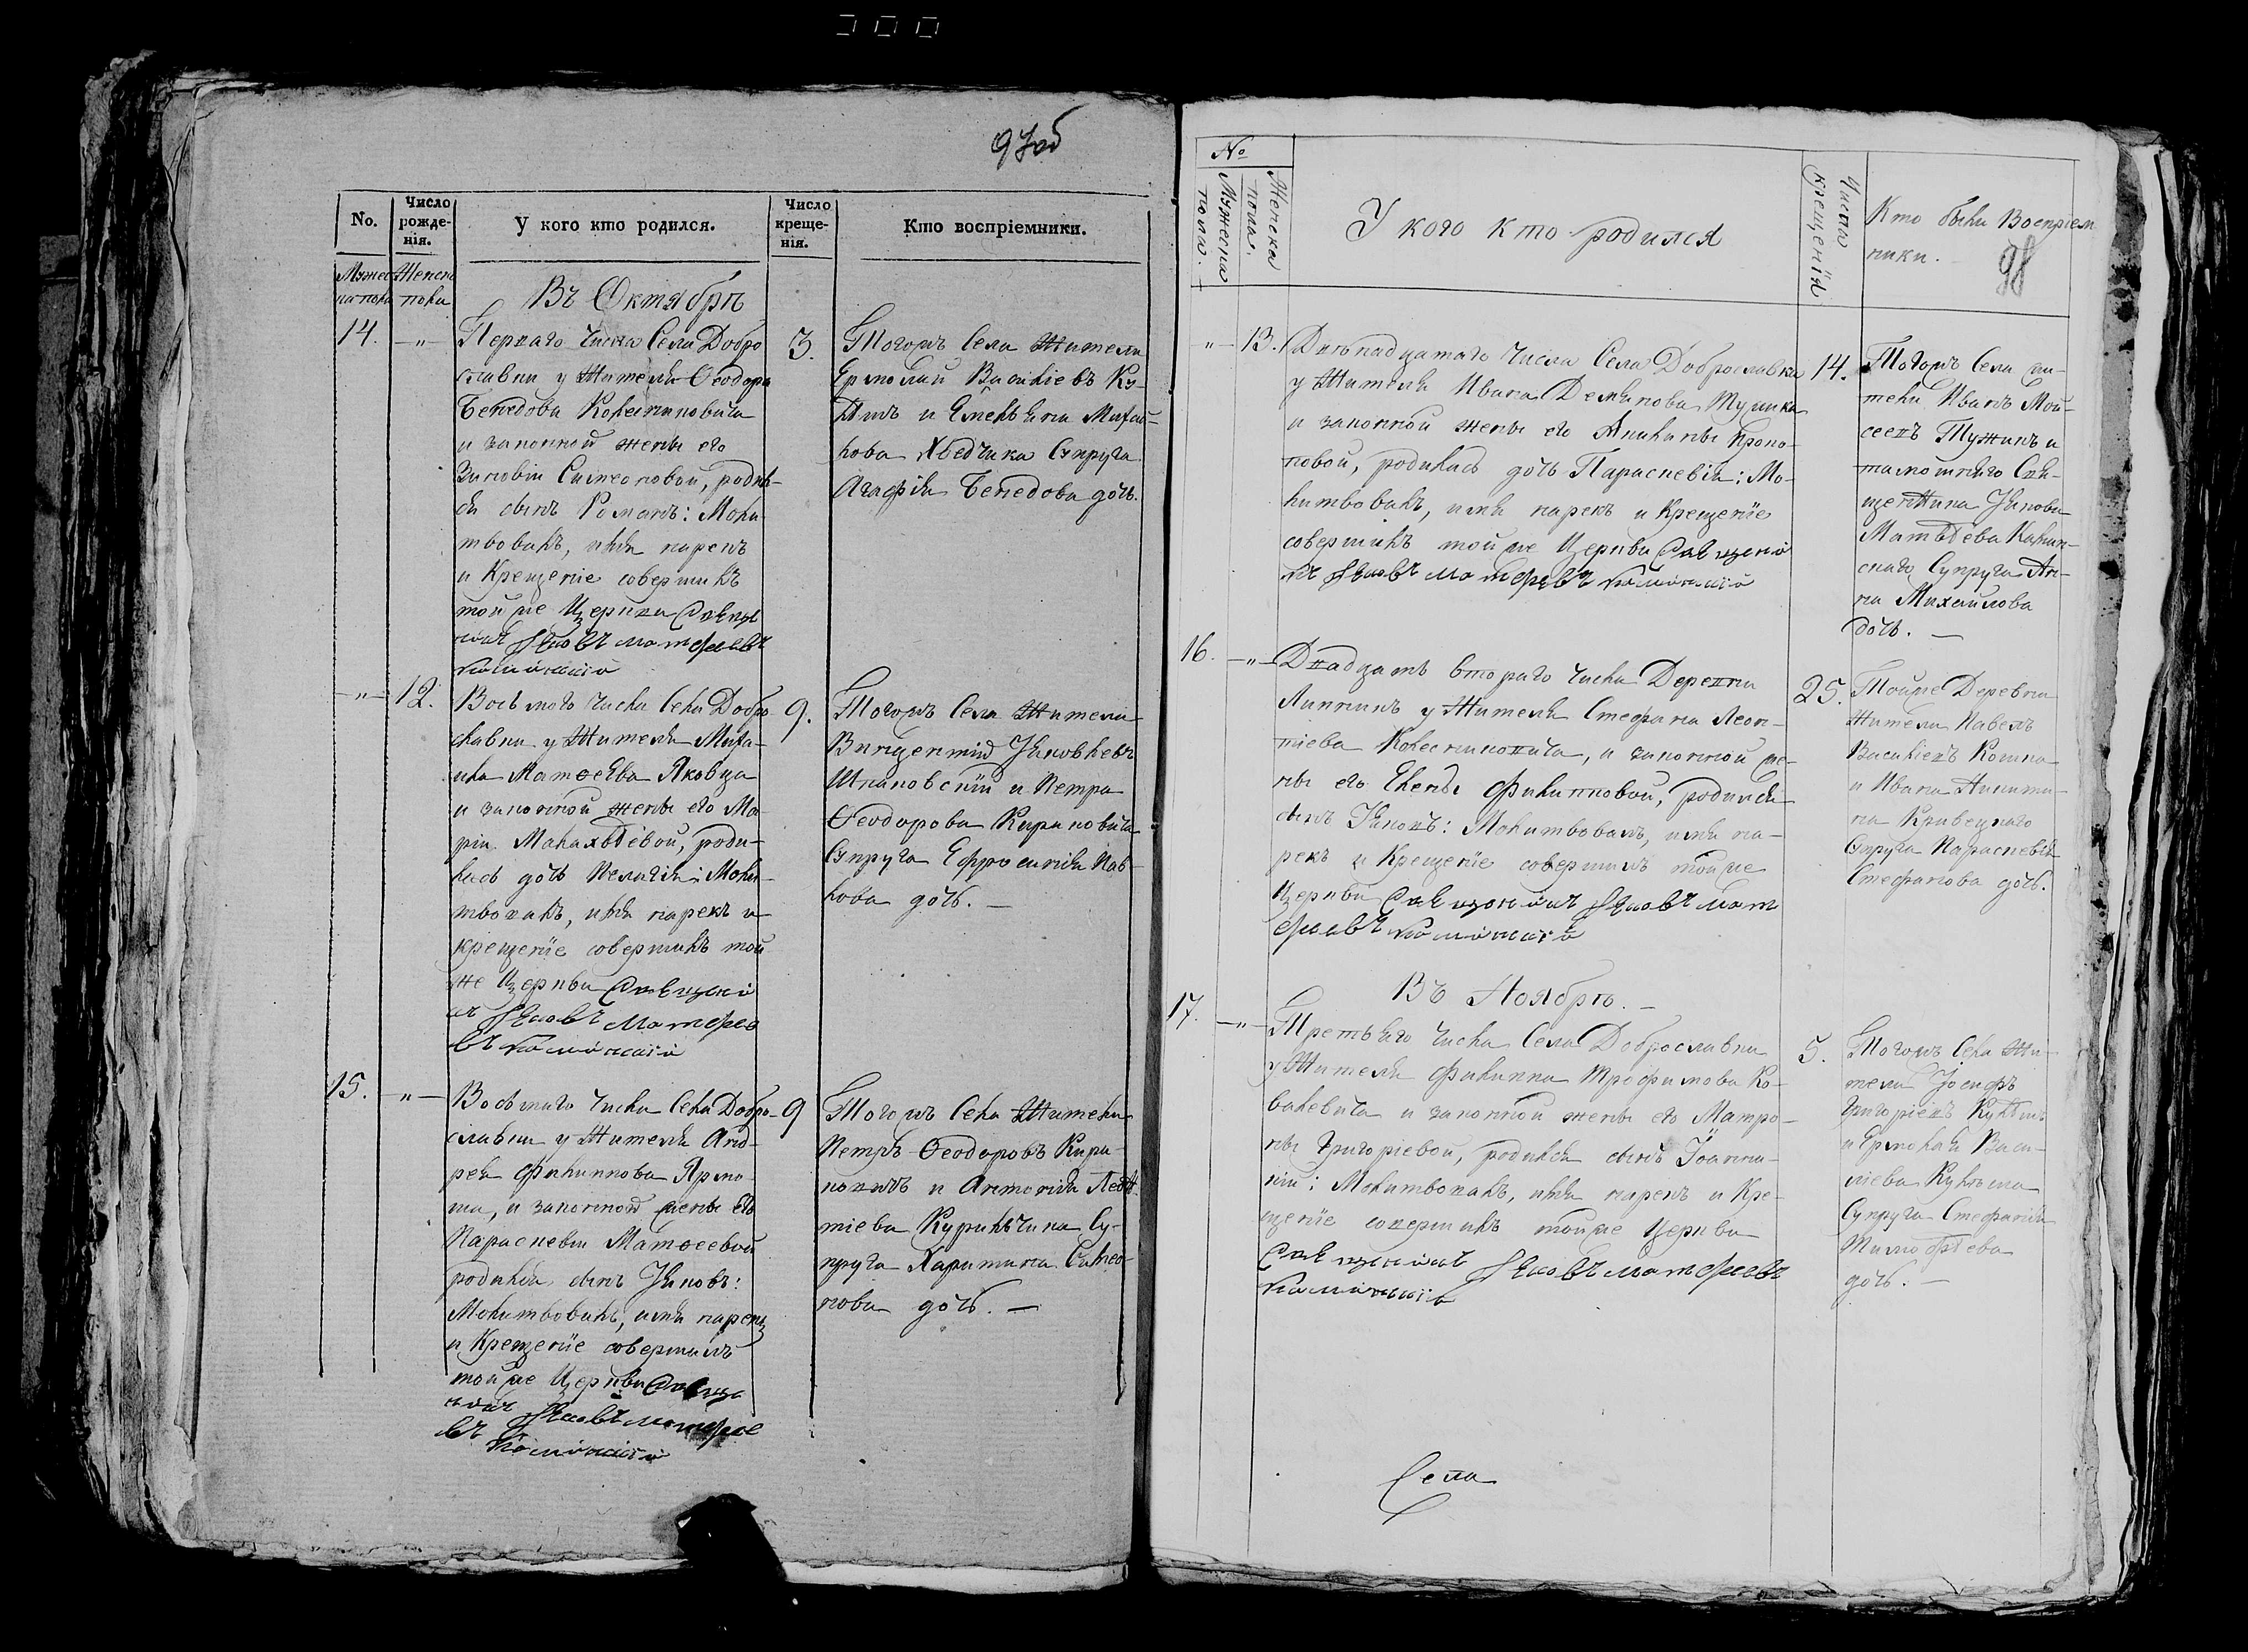 97об
No.
Число рожде-нія.
У кого кто родился.
Число креще-нія.
Кто воспріемники.
Мужес на пола
Женска пола
Въ Октябрѣ
14.
—„—
Перваго числа Села Добро
славки у Жителя Ѳеодора
и законной жены его
Зиновіи Симеоновой, родил-
ся сынъ Романъ: Моли-
твовалъ, имя нарекъ
и Крещеніе совершилъ
той же Церкви Священ
никъ Яковъ Матфеевъ
3.
Тогожъ Села Жители
Ермолай Васильевъ Ку-
и Емельяна Михай-
лова Хведчика Супруга
Агафія дочь.
—„—
12.
Восьмого числа Села Добро
славки у Жителя Миха-
ила Матѳеева Яковца
и законной жены его Ма
ріи Малахѣевой, роди-
лась дочь Пелагія: Моли-
твовалъ, имя нарекъ и
крещеніе совершилъ той
же Церкви Священни
къ Яковъ Матфее
въ
9.
Тогожъ Села Жители
Викентій Яковлевъ
Шпаковскій и Петра
Ѳеодорова Кириловича
Супруга Ефросинія Пав-
лова дочь. —
15.
—„—
Восьмаго числа Села Добро-
славки у Жителя Анд-
рея Филиппова Ярмо
ша, и законной жены его
Параскевіи Матѳеевой
родился сынъ Яковъ:
Молитвовалъ, имя нарекъ
и Крещеніе совершилъ
той же Церкви Священ
никъ Яковъ Матфее
въ
9
Тогожъ Села Жители
Петръ Ѳеодоровъ Кири-
и Антонія Леон-
тіева Курильчика Су-
пруга Харитина Симео-
нова дочь. —
№
Мужеска пола.
Женска пола.
У кого кто родился
Число крещенія
Кто были Воспріем
ники.
98
—„—
13.
Двѣнадцатаго числа Села Доброславки
у Жителя Ивана Демянова
и законной жены его Акилины
родилась дочь Параскевія: Мо-
литвовалъ, имя нарекъ и Крещеніе
совершилъ той же Церкви Священни
къ Яковъ Матфеевъ
14.
Тогожъ Села жи-
тели Иванъ Мой-
сеевъ и
тамошняго Свя-
щенника Якова
Матѳеева
скаго Супруга Ан-
на Михайлова
дочь. —
16.
—„—
Двадцать втораго числа Деревни
у Жителя Стефана Леон-
тіева и законной же-
ны его Елены Филипповой, родился
сынъ Яковъ: Молитвовалъ, имя на-
рекъ и Крещеніе совершилъ той же
Церкви Священникъ Яковъ Мат
феевъ
25.
Той же Деревни
Жители Павелъ
Васильевъ
и Ивана Никити-
на Кривецкаго
Супруга Параскевія
Стефанова дочь.
Въ Ноябрѣ. —
17.
—„—
Третьяго числа Села Доброславки
у Жителя Филиппа Трофимова Ко-
валевича и законной жены его Матро-
ны Григоріевой, родился сынъ Іоанни-
кій: Молитвовалъ, имя нарекъ и Кре-
щеніе совершилъ той же Церкви
Священникъ Яковъ Матфеевъ
5.
Тогожъ Села Жи-
тели Іосифъ
Григоріевъ
и Ермолая Васи-
ліева
Супруга Стефанія
Тимофѣева
дочь. —
Села